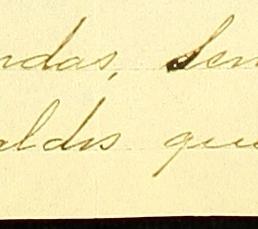 ndas, sem
aldis que